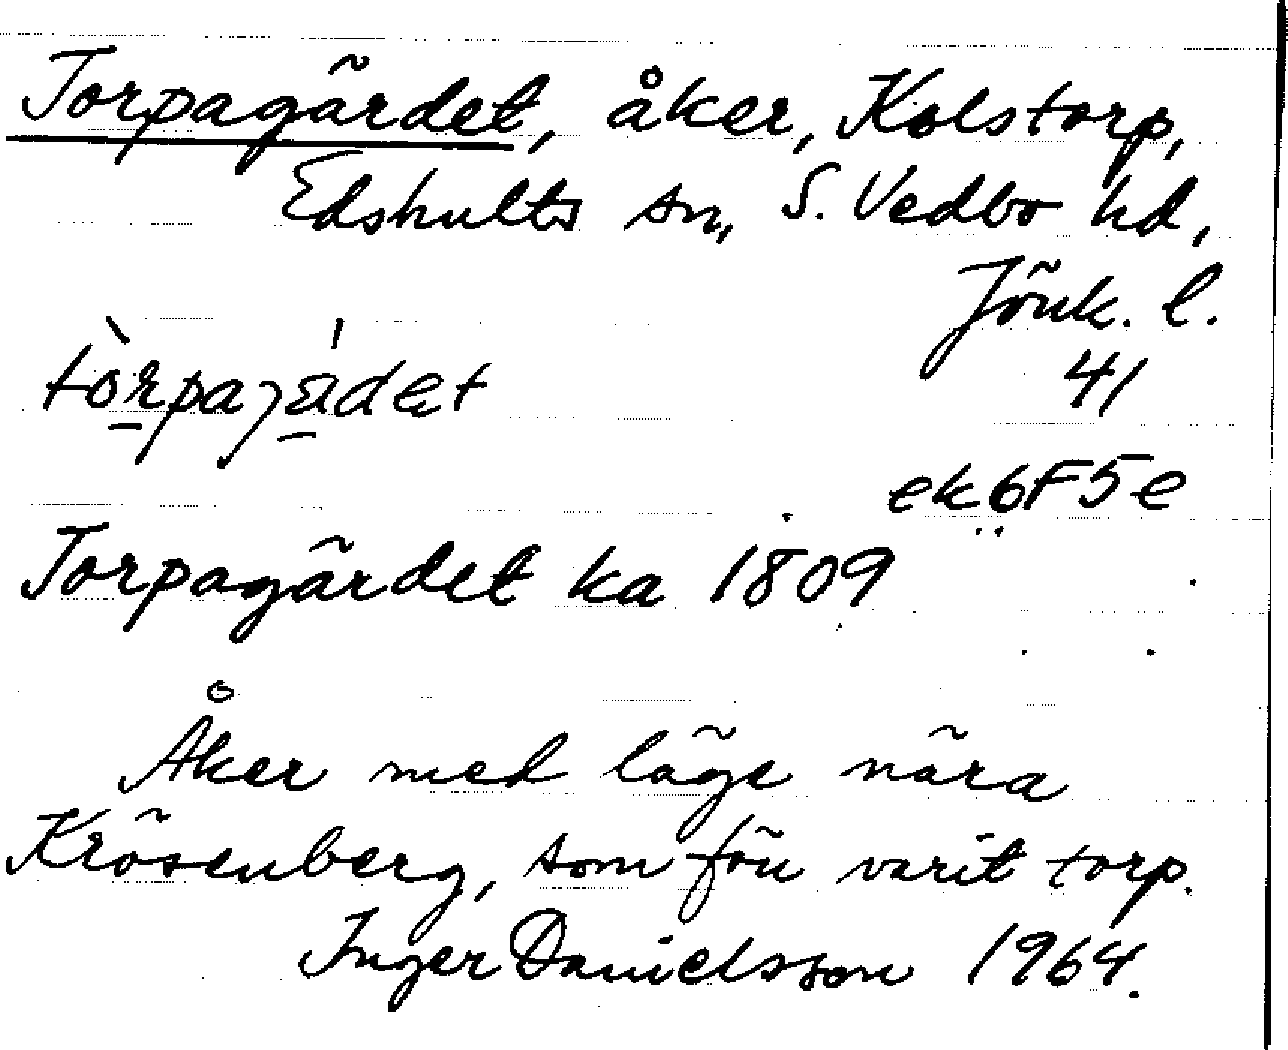 Torpagärdet, åker, Kolstorp,
Edshults sn, S. Vedbo hd,
Jönk. l.
41
ek6F5e
Torpagärdet ka 1809
Åker med läge nära
Krösenberg, som förr varit torp.
Inger Danielsson 1964.